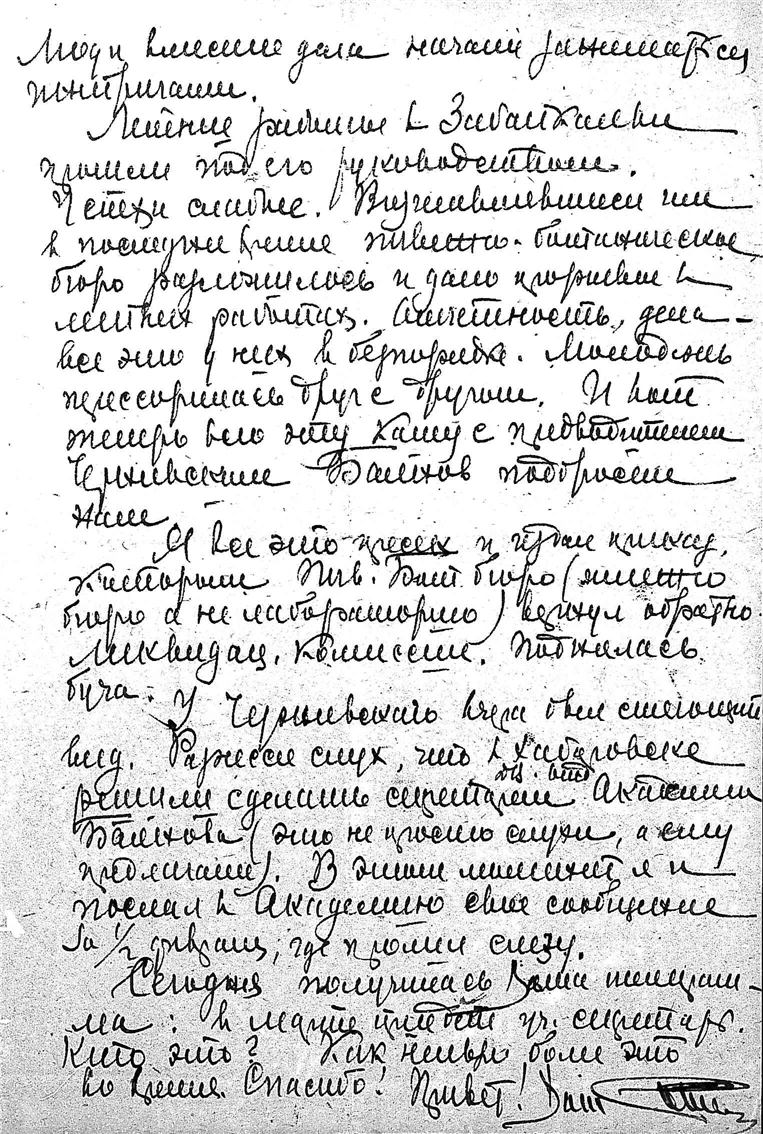 Люди вместо дела начали заниматься
интригами.
Летние работы в Забайкальи
прошли под его руководством.
Успехи слабые. Возглавлявшееся им
в последнее время почвенно-ботаническое
бюро разложилось и дало прорывы в
летних работах. Отчетность, дела –
все это у них в беспорядке. Молодежь
перессорилась друг с другом. И вот
теперь всю эту кашу с предводителем
Чернивским Балихов подбросил
нам.
Я все это пресек и издал приказ,
которым Почв. Бот бюро (именно
бюро а не лабораторию) вернул обратно
Ликвидац. комиссии. Поднялась
буча. У вчера был
вид. Разнесся слух, что в Хабаровске
решили сделать секретарем Академии
(это не просто слухи, а ему
предлагали). В этот момент я и
послал в Академию свое сообщение
за 1/2 февраля, где пролил слезу.
Сегодня получилась Ваша телеграм–
ма: в марте приедет уч. секретарь.
Кто это? Как нельзя более это
во время. Спасибо! Привет! Ваш